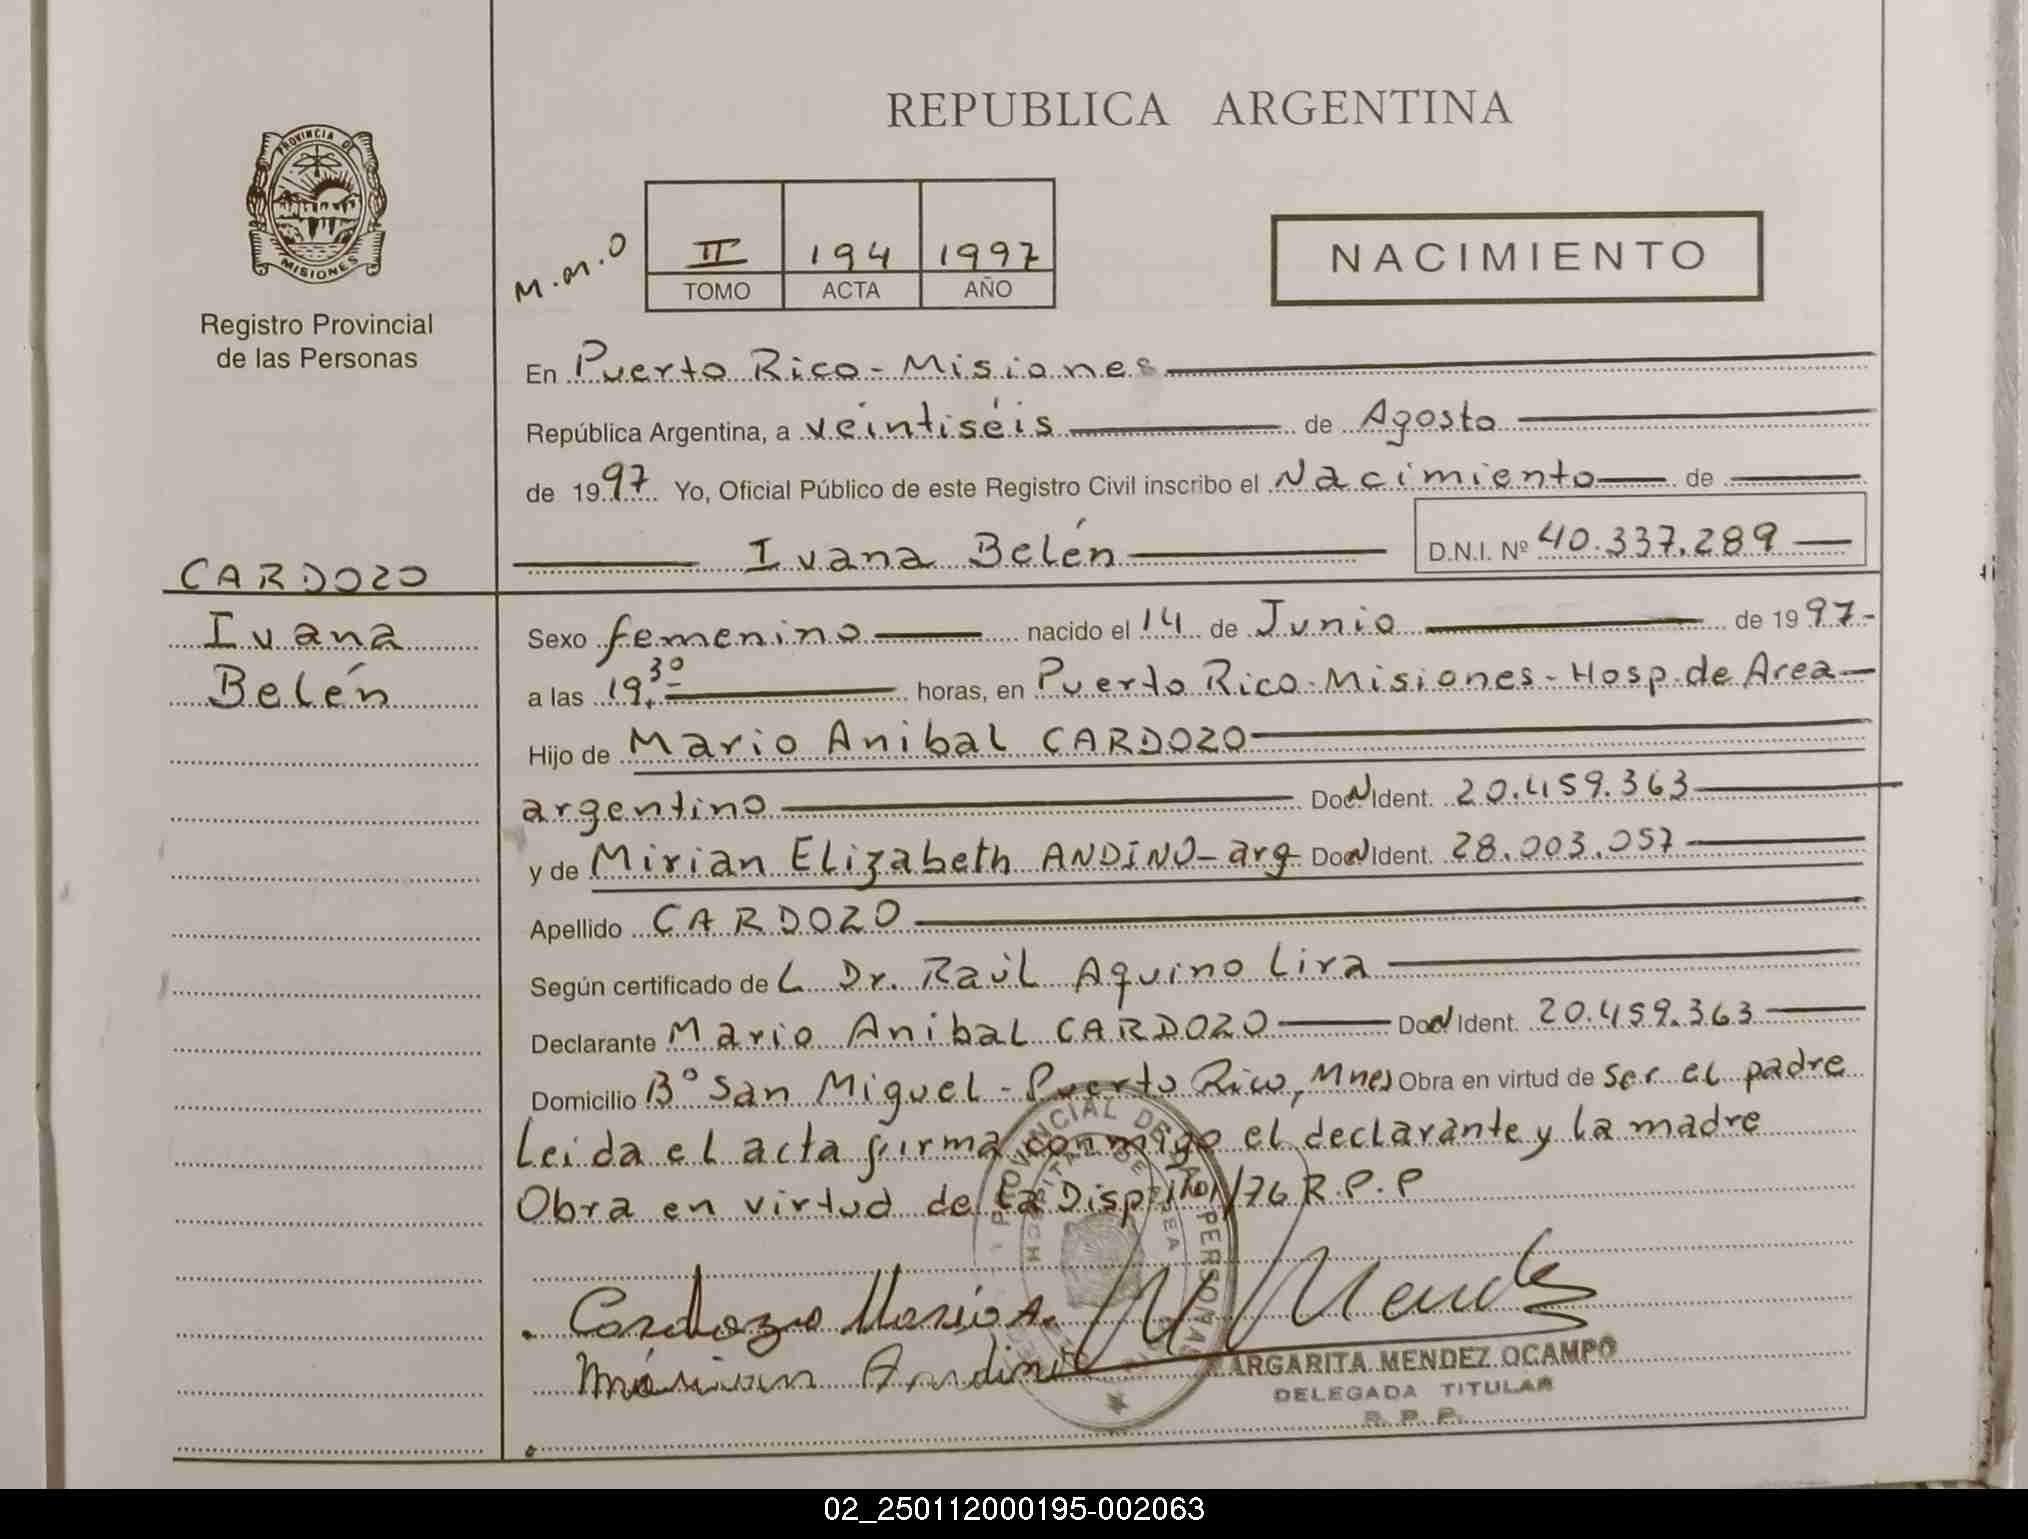 REPUBLICA ARGENTINA
PROVINCIA DE
MISIONES
Registro Provincial
de las Personas
M.M.O
II 194 1997
TOMO ACTA AÑO
NACIMIENTO
En Puerto Rico - Misiones
República Argentina, a veintiséis de Agosto
de 1997 Yo, Oficial Público de este Registro Civil inscribo el Nacimiento de
Ivana Belén D.N.I. Nº 40.337.289
CARDOZO
Ivana
Belén
Sexo femenino nacido el 14 de Junio de 1997-
a las 19.30 horas, en Puerto Rico - Misiones - Hosp. de Area
Hijo de Mario Anibal CARDOZO
argentino Doc N Ident. 20.459.363
y de Mirian Elizabeth ANDINO - arg Doc N Ident. 28.003.057
Apellido CARDOZO
Según certificado de L Dr. Raúl Aquino Lira
Declarante Mario Anibal CARDOZO Doc N Ident. 20.459.363
Domicilio Bº San Miguel - Puerto Rico, Mnes Obra en virtud de ser el padre
Leida el acta firma conmigo el declarante y la madre
Obra en virtud de la Disp. /76 R.P.P
PROVINCIAL DE LAS PERSONAS
Cardozo Mario A. Mendez
Mirian Andino
MARGARITA MENDEZ OCAMPO
DELEGADA TITULAR
R. P. P.
02_250112000195-002063